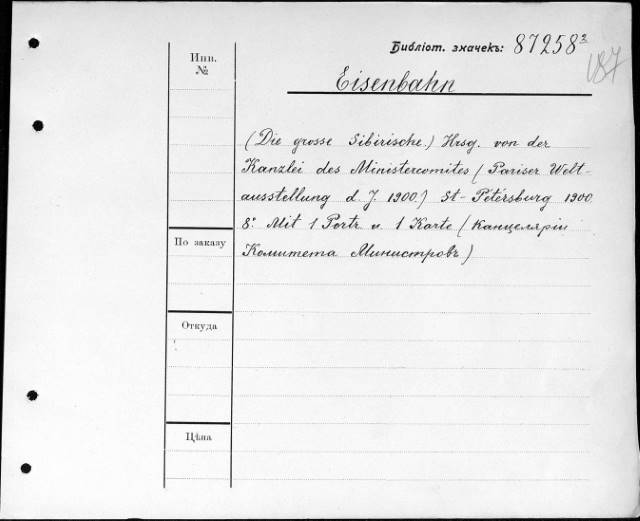 Библіот. значекъ: 87258²
187
Инв.
№
Eisenbahn
(Die grosse Sibirische.) Hrsg. von der
Kanzlei des Ministercomites (Pariser Welt-
ausstellung d. J. 1900.) St-Petersburg 1900.
8º Mit 1 Portr. u. 1 Karte (Канцеляріи
Комитета Министровъ)
По заказу
Откуда
Цѣна